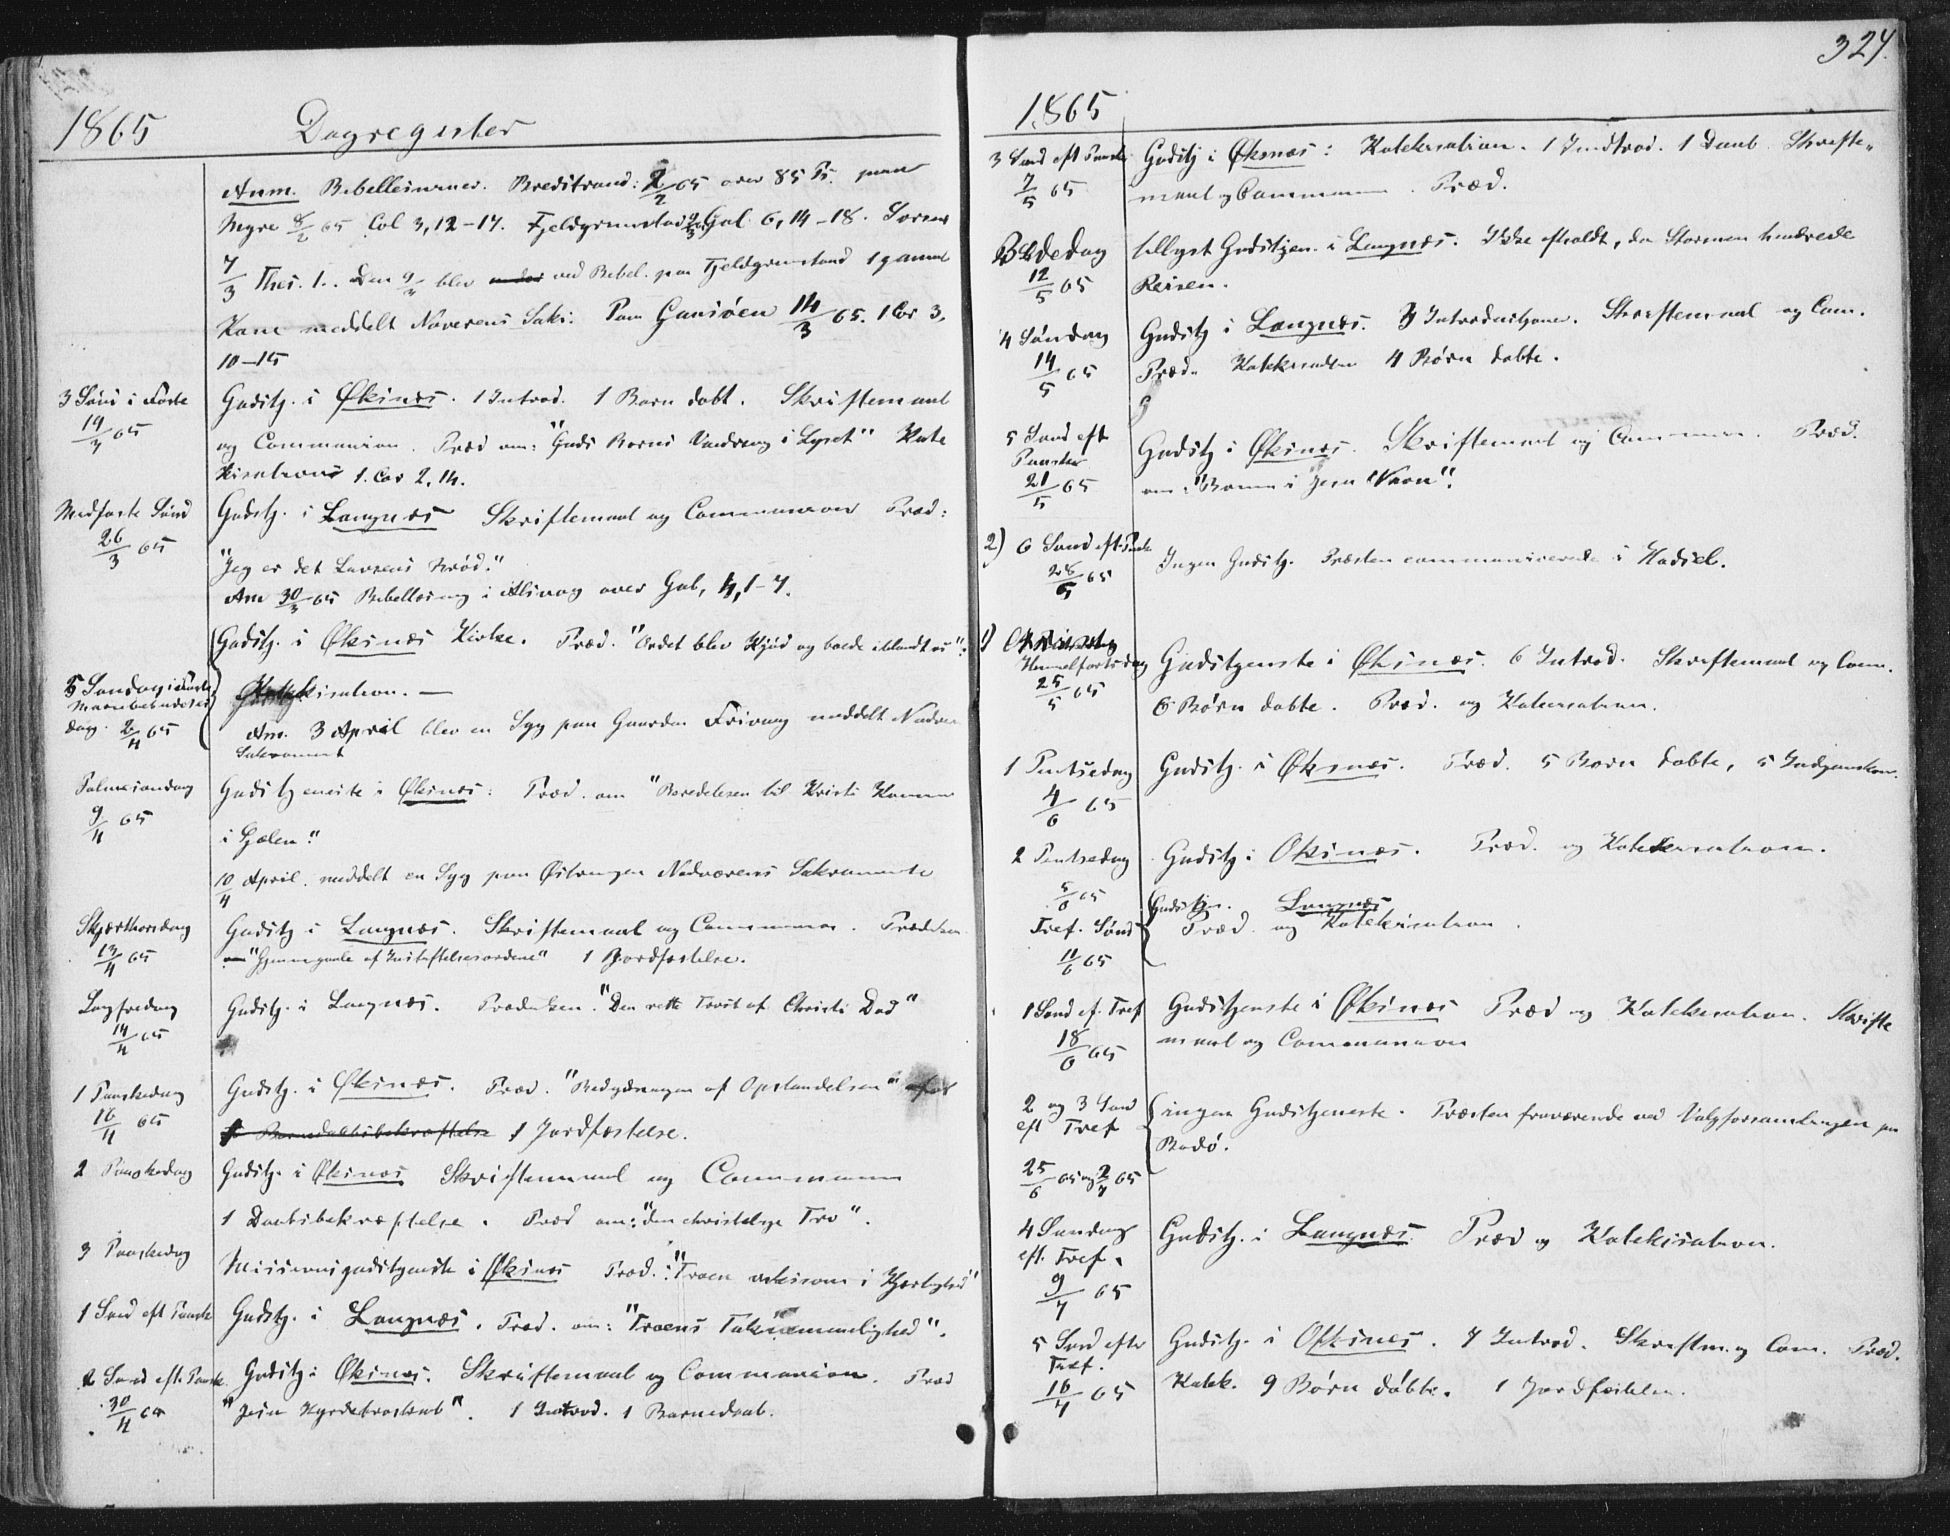 1865 Dagregister
Anm. Bibellæsninger. Bredstrand: 2/2 65 over 85 Ps. paa
Myre 8/2 65 Col 3,12-17. Fjeldgrimstad 2/3 Gal. 6,14-18.
7/3 Thes. 1. Den 9/3 blev ved Bibel. paa Fjeldgrimstad 1 gammel
Kone meddelt Naverens Sakr. Paa Gunsöen 14/3 65. 1 Cor 3,
10-15
3 Sønd i Faste Gudstj. i Øksnæs. 1 Introd. 1 Barn døbt. Skriftemaal
19/3 65 og Communion. Præd om: "Guds Børns Vandring i Lyset" Kate
kisations 1. Cor 2,14.
Midfaste Sønd Gudstj. i Langnæs Skriftemaal og Communion Præd:
26/3 65 "Jeg er det Levende Brød."
Anm 30/3 65 Bibellæsning i Alsvaag over Gal, 4,1-7.
Gudstj. i Øksnæs Kirke. Præd. "Ordet blev Kjød og boede iblandt os":
5 Søndag i Faste Katekisation. —
Mariæbebudelses
dag. 2/4 65 Anm. 3 April blev en Syg paa Gaarden Frivaag meddelt Nadver
Sakrament
Palmesøndag Gudstjeneste i Øksnæs: Præd. om "Beredelsen til Kristi Komme
9/4 65 i Sjælen."
10/4 April. meddelt en Syg paa Nadverens Sakramente
Skjærthorsdag Gudstj i Langnæs. Skriftemaal og Communion. Prædiken
13/4 65 "Gjennemgaaelse af Indstiftelsesordene" 1 Jordfæstelse.
Langfredag Gudstj. i Langnæs. Prædiken. "Den rette Trøst af Christi Død"
14/4 65
1 Paaskedag Gudstj. i Øksnæs. Præd. "Betydningen af Opstandelsen"
16/4 65 1 Jordfæstelse.
2 Paaskedag Gudstj. i Øksnæs Skriftemaal og Communion
1 Daabsbekræftelse. Præd om: "den christelige Tro".
3 Paaskedag Missionsgudstjeneste i Øksnæs Præd.: "Troen virksom i Kjærlighed"
1 Sønd eft Paaske Gudstj. i Langnæs. Præd. om: "Troens Taknemmelighed".
2 Sønd eft. Paask Gudstj i Øksnæs. Skriftemaal og Communion. Præd
30/4 65 "Jesu Hyrdetroskab". 1 Introd. 1 Barnedaab.
324.
1865
3 Sønd eft Paaske Gudstj i Øksnæs: Katekisation. 1 Introd. 1 Daab. Skrifte„
7/5 65 maal og Communion. Præd.
Bededag tillyst Gudstjen. i Langnæs. Ikke afholdt, da Stormen hindrede
12/5 65 Reisen.
4 Søndag Gudstj i Langnæs. 3 Introductioner. Skriftemaal og Com.
14/5 65 Præd. Katekisation 4 Børn døbte.
5 Sønd eft Gudstj i Øksnæs. Skriftemaal og Communion. Præd.
Paaske
21/5 65 om: "Bønnen i Jesu Navn".
2) 6 Sønd eft. Paask Ingen Gudstj. Præsten communicerende i Hadsel.
28/5 65
1) Christi
Himmelfartsdag Gudstjeneste i Øksnæs. 6 Introd. Skriftemaal og Com.
25/5 65 6 Børn døbte. Præd. og Katekisation.
1 Pintsedag Gudstj. i Øksnæs. Præd. 5 Børn døbte, 5 Indgangskon.
4/6 65
2 Pintsedag Gudstj i Øksnæs. Præd. og Katekisation.
5/6 65 Gudstjen. Langnæs
Tref. Sønd Præd. og Katekisation.
11/6 65
1 Sønd ef. Tref Gudstjeneste i Øksnæs Præd og Katekisation. Skrifte
18/6 65 maal og Communion
2 og 3 Sønd ingen Gudstjeneste. Præsten fraværende ved Valgforsamlingen paa
eft Tref Bodø.
25/6 65 og 2/7 65
4 Søndag Gudstj. i Langnæs. Præd og Katekisation.
eft. Tref.
9/7 65
5 Sønd efter Gudstj. i Øksnæs. 7 Introd. Skriftm. og Com. Præd.
Tref.
16/7 65 Katek. 9 Børn døbte. 1 Jordfæstelse.